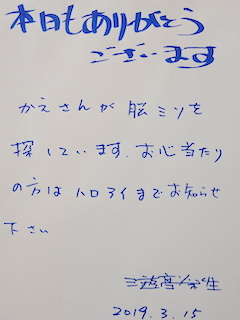 本日もありがとう
ございます
かえさんが 脳ミソを
探しています。お心当たり
の方は ハロアイまでお知らせ
下さい
2019.3.15